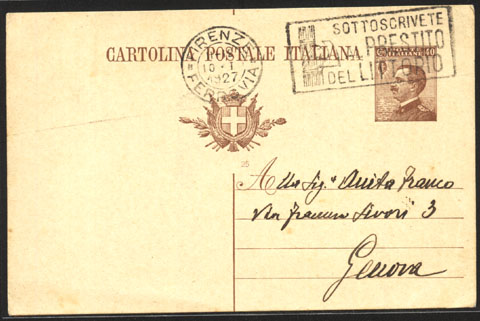 SOTTOSCRIVETE
PRESTITO
DEL LITTORIO
FIRENZE
10-1
1927
FERROVIA
CARTOLINA POSTALE ITALIANA
25
Alla Sig.ª Anita Franco
Via 3
Genova